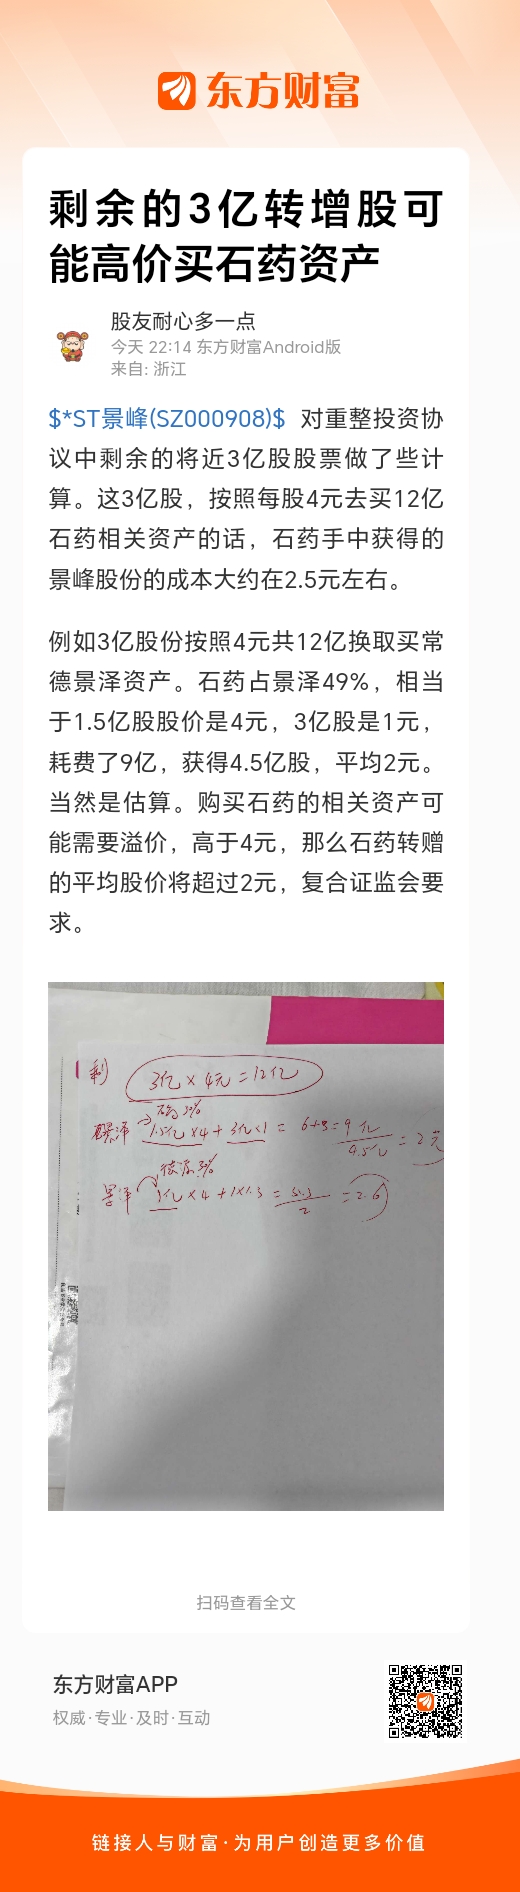 东方财富
剩余的3亿转增股可
能高价买石药资产
股友耐心多一点
今天 22:14 东方财富Android版
来自: 浙江
$*ST景峰(SZ000908)$ 对重整投资协
议中剩余的将近3亿股股票做了些计
算。这3亿股，按照每股4元去买12亿
石药相关资产的话，石药手中获得的
景峰股份的成本大约在2.5元左右。
例如3亿股份按照4元共12亿换取买常
德景泽资产。石药占景泽49%，相当
于1.5亿股股价是4元，3亿股是1元，
耗费了9亿，获得4.5亿股，平均2元。
当然是估算。购买石药的相关资产可
能需要溢价，高于4元，那么石药转赠
的平均股价将超过2元，复合证监会要
求。
剩 3亿×4元=12亿
景泽 1.5亿×4+3亿×1= 6+3=9亿
4.5亿 =2元
景泽 1亿×4+1×1.3 =5.3
2 =2.6
扫码查看全文
东方财富APP
权威·专业·及时·互动
链接人与财富·为用户创造更多价值